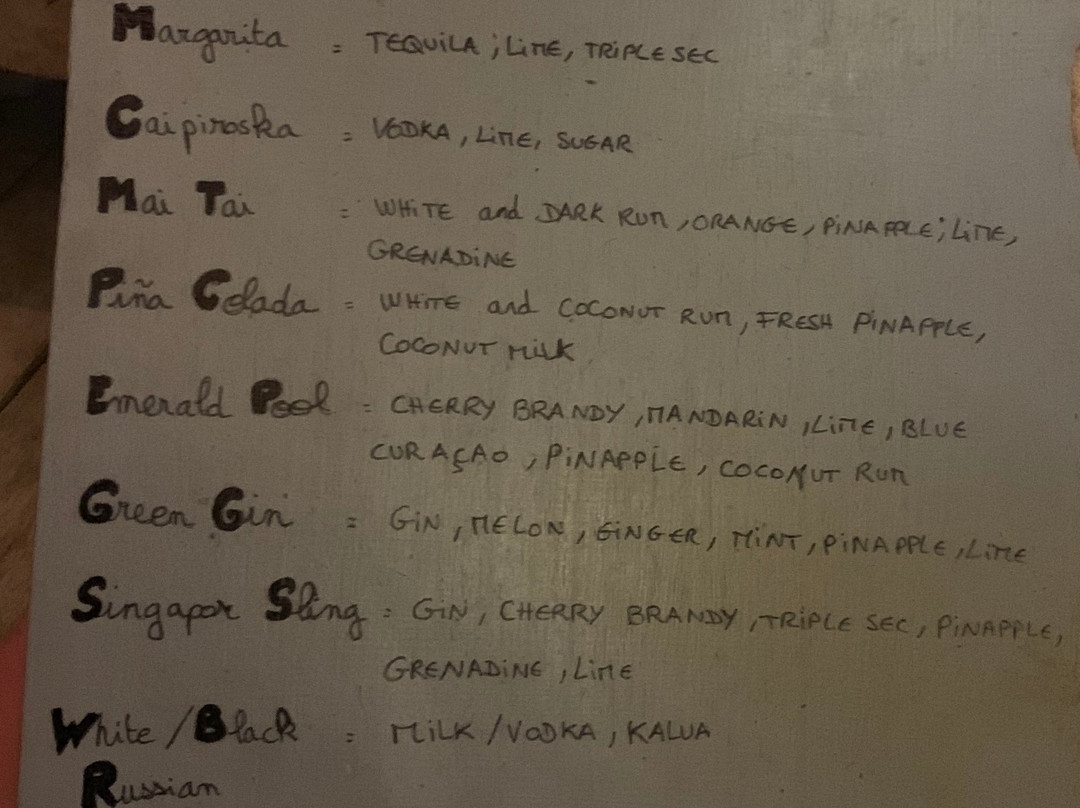 Margarita = TEQUILA ; LIME, TRIPLE SEC
Caipiroska = VODKA, LIME, SUGAR
Mai Tai = WHITE and DARK RUM, ORANGE, PINAPPLE; LIME,
GRENADINE
Piña Colada = WHITE and COCONUT RUM, FRESH PINAPPLE,
COCONUT MILK
Emerald Pool = CHERRY BRANDY, MANDARIN, LIME, BLUE
CURAÇAO, PINAPPLE, COCONUT RUM
Green Gin = GIN, MELON, GINGER, MINT, PINAPPLE, LIME
Singapor Sling = GIN, CHERRY BRANDY, TRIPLE SEC, PINAPPLE,
GRENADINE, LIME
White/Black = MILK/VODKA, KALUA
Russian